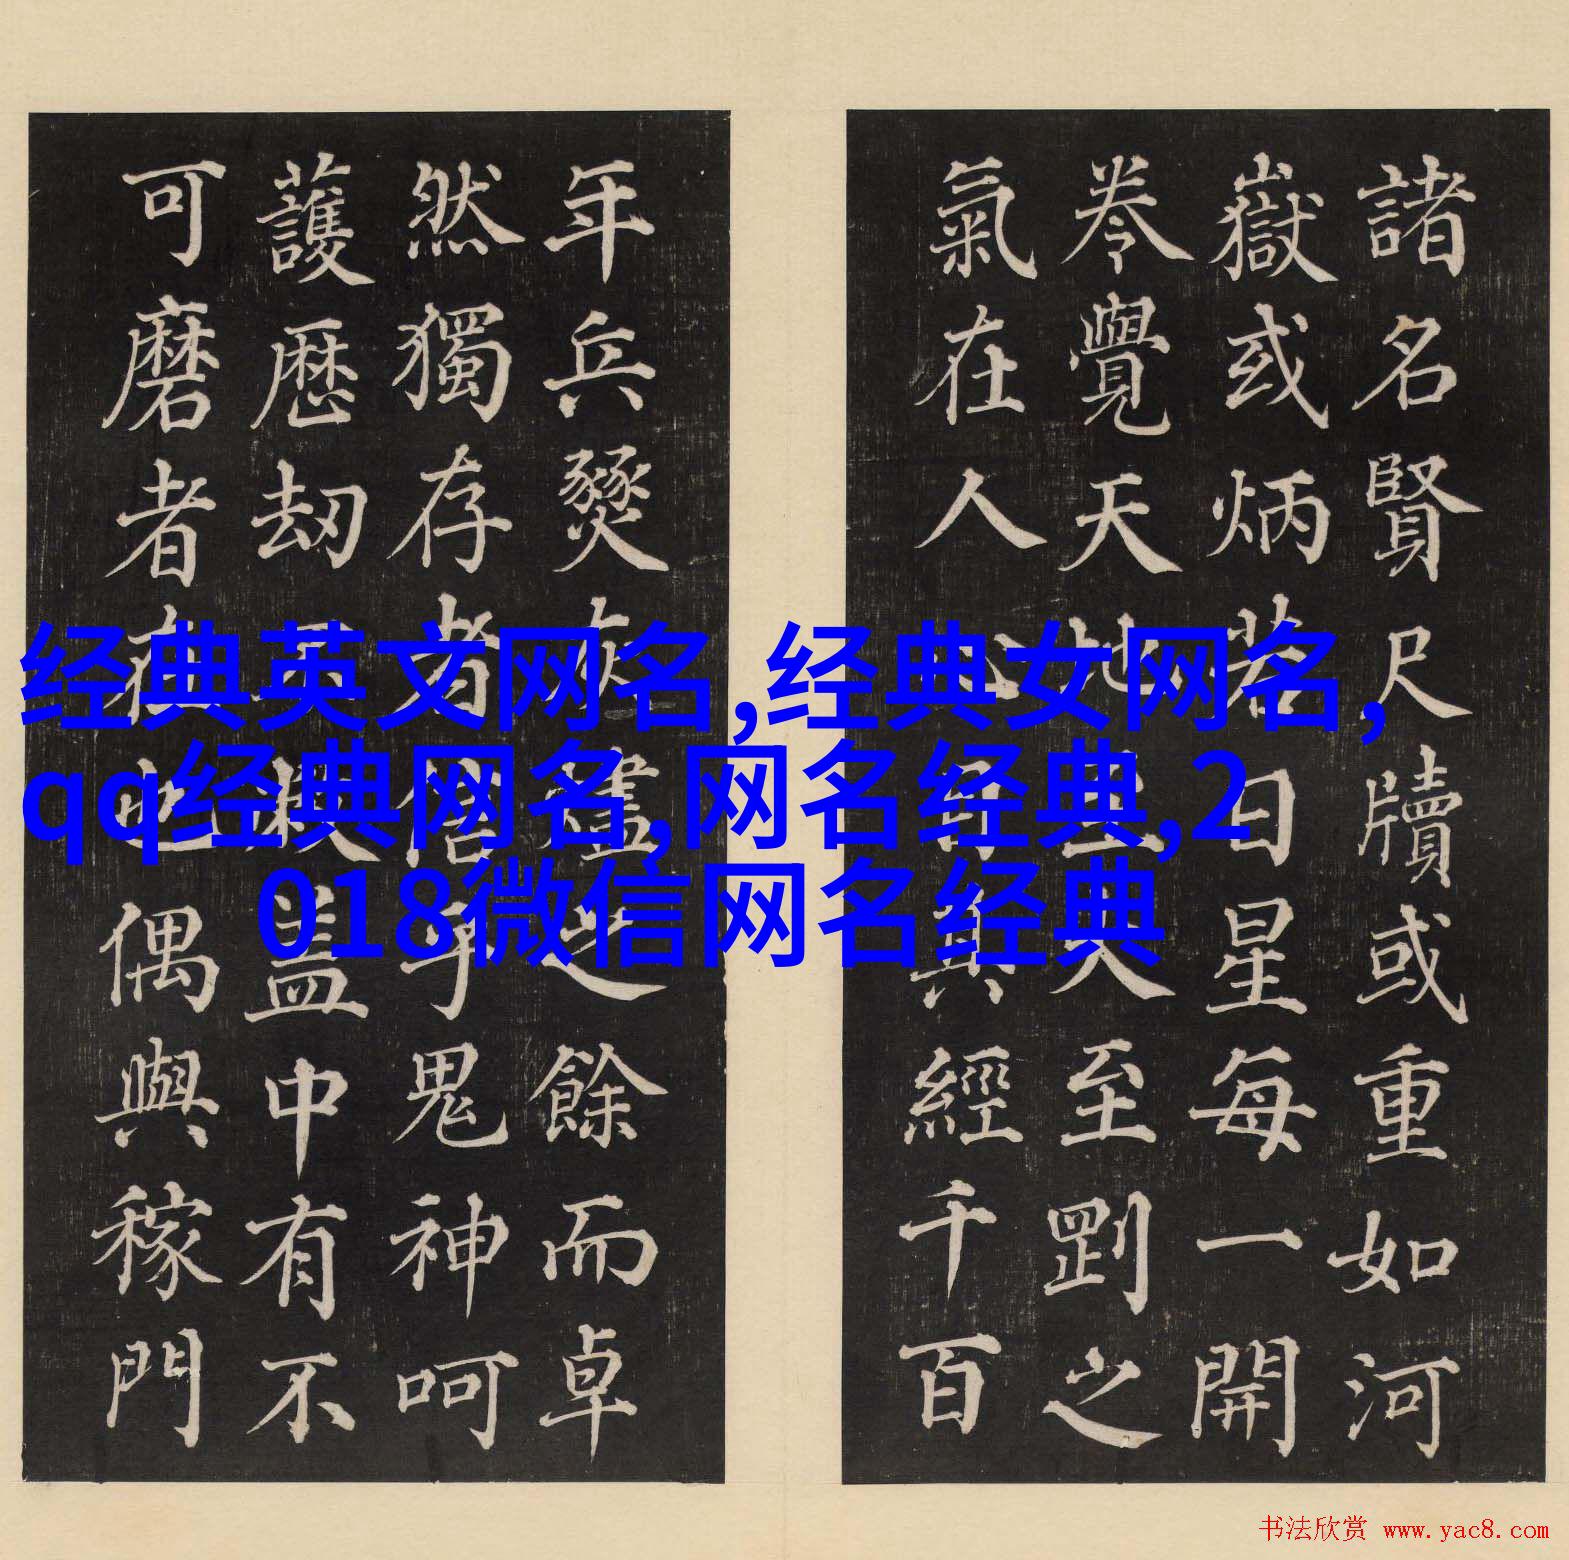 諸名賢尺牘或重如河
嶽或炳若日星每一開
卷覺天地至大至剛之
氣在人心目其經千百
年兵燹灰燼之餘而卓
然獨存者信乎鬼神呵
護歷劫不毀蓋中有不
可磨者在也偶與稼門
经典英文网名,经典女网名,
qq经典网名,网名经典,2
018微信网名经典
书法欣赏 www.yac8.com